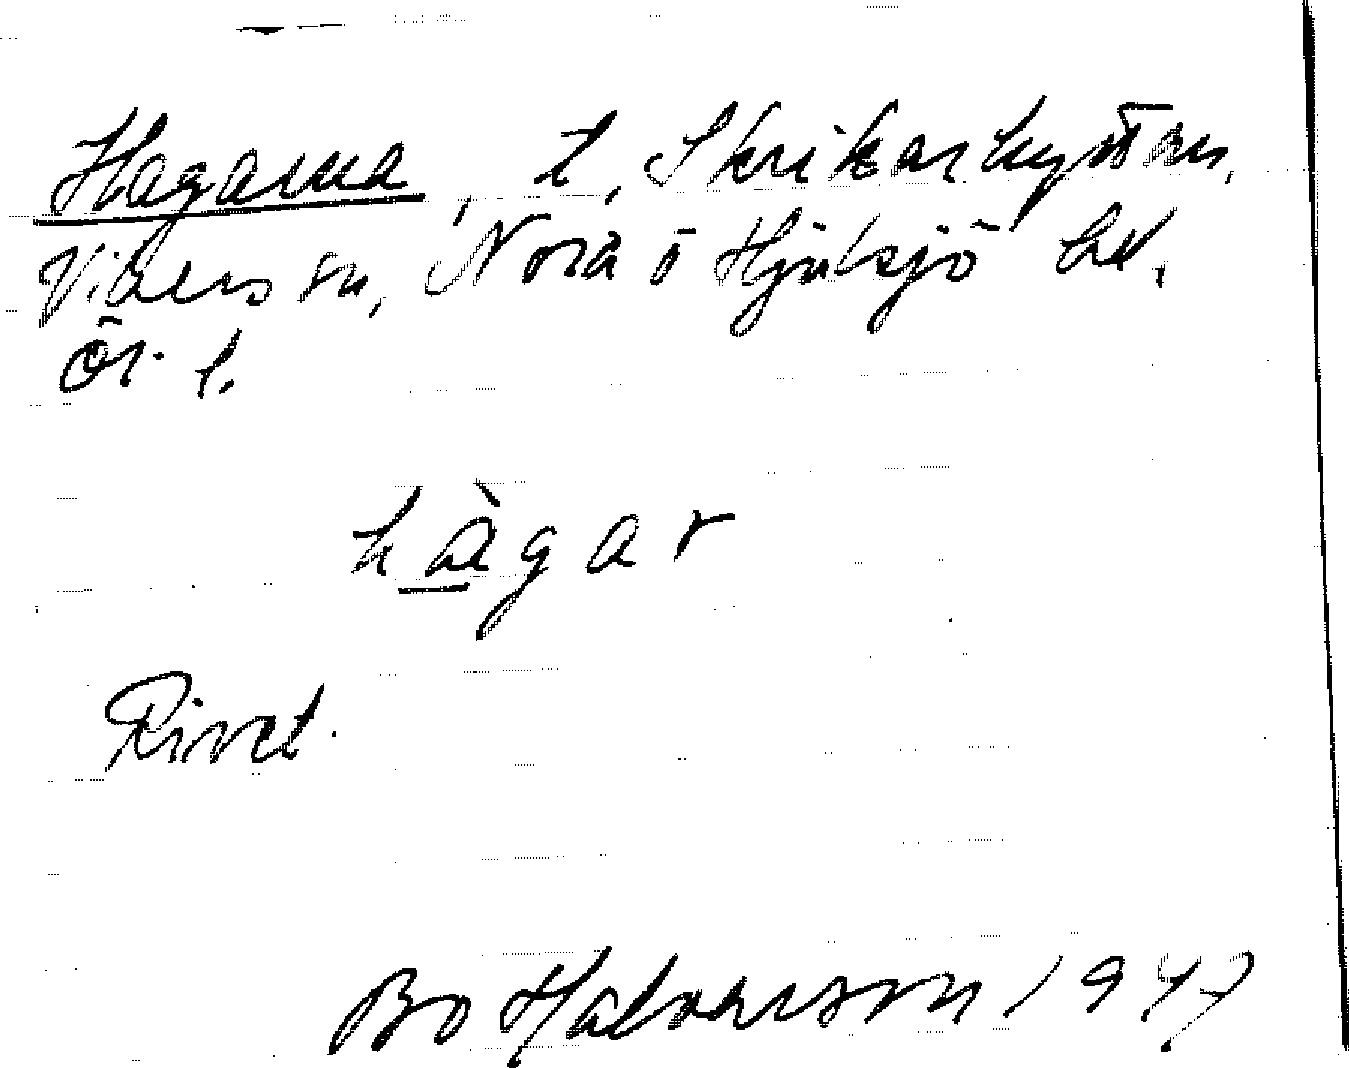 Hagarna, t, Skrikarhyttan,
Vikers sn, Nora o Hjulsjö hd.
Ör. l.
hàgar
Rivet.
Bo Halvarson 1947